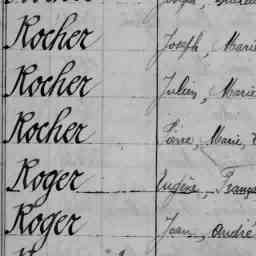 Rocher Joseph, Marie
Rocher Julien, Marie
Rocher Pierre, Marie,
Roger Eugène, Franç
Roger Jean, André